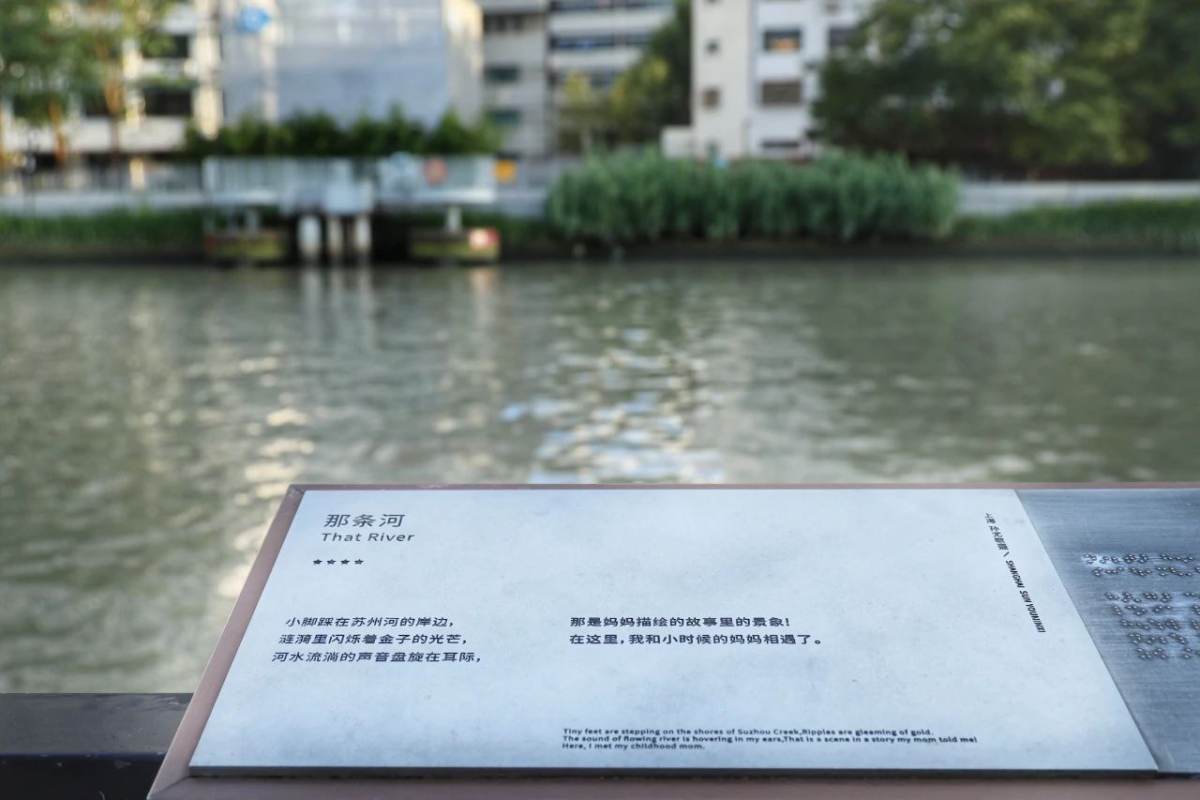 那条河
That River
小脚踩在苏州河的岸边，
涟漪里闪烁着金子的光芒，
河水流淌的声音盘旋在耳际，
那是妈妈描绘的故事里的景象！
在这里，我和小时候的妈妈相遇了。
Tiny feet are stepping on the shores of Suzhou Creek,Ripples are gleaming of gold.
The sound of flowing river is hovering in my ears,That is a scene in a story my mom told me!
Here, I met my childhood mom.
上海
SHANGHAI SUN